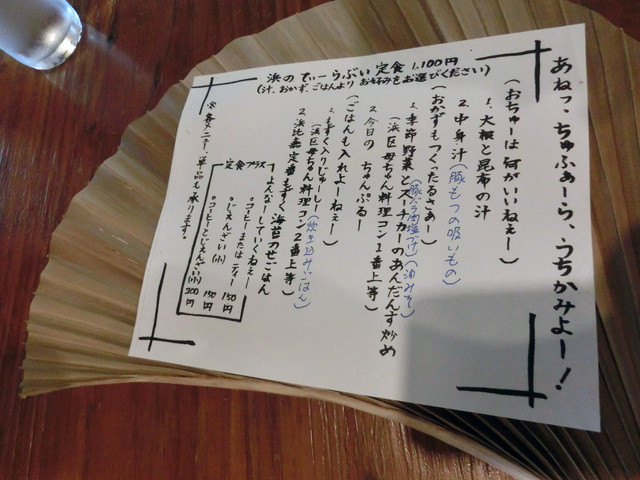 あねっ、ちゅふぁーら、うちかみよー！
浜のてぃーらぶい定食 1,100円
（汁、おかず、ごはんより お好みをお選びください）
（おちゅーは何がいいねぇー）
1、大根と昆布の汁
2、中身汁（豚もつの吸いもの）
（おかずもつくったるさぁー）
1、季節野菜とスーチカーのあんだんす炒め
（豚バラ肉塩づけ）（油みそ）
（浜区母ちゃん料理コン1番上等）
2、今日の ちゅんぷるー
（ごはんも入れよーねぇー）
1、もずく入りじゅーしー（炊き込みごはん）
（浜区母ちゃん料理コン2番上等）
2、浜比嘉定番もずくと海苔のせごはん
定食プラス
よんなーしていくねぇー
◦コーヒーまたはティー 150円
◦ぜんざい（小） 150円
◦コーヒーとぜんざい（小） 200円
※各メニュー、単品も承ります。